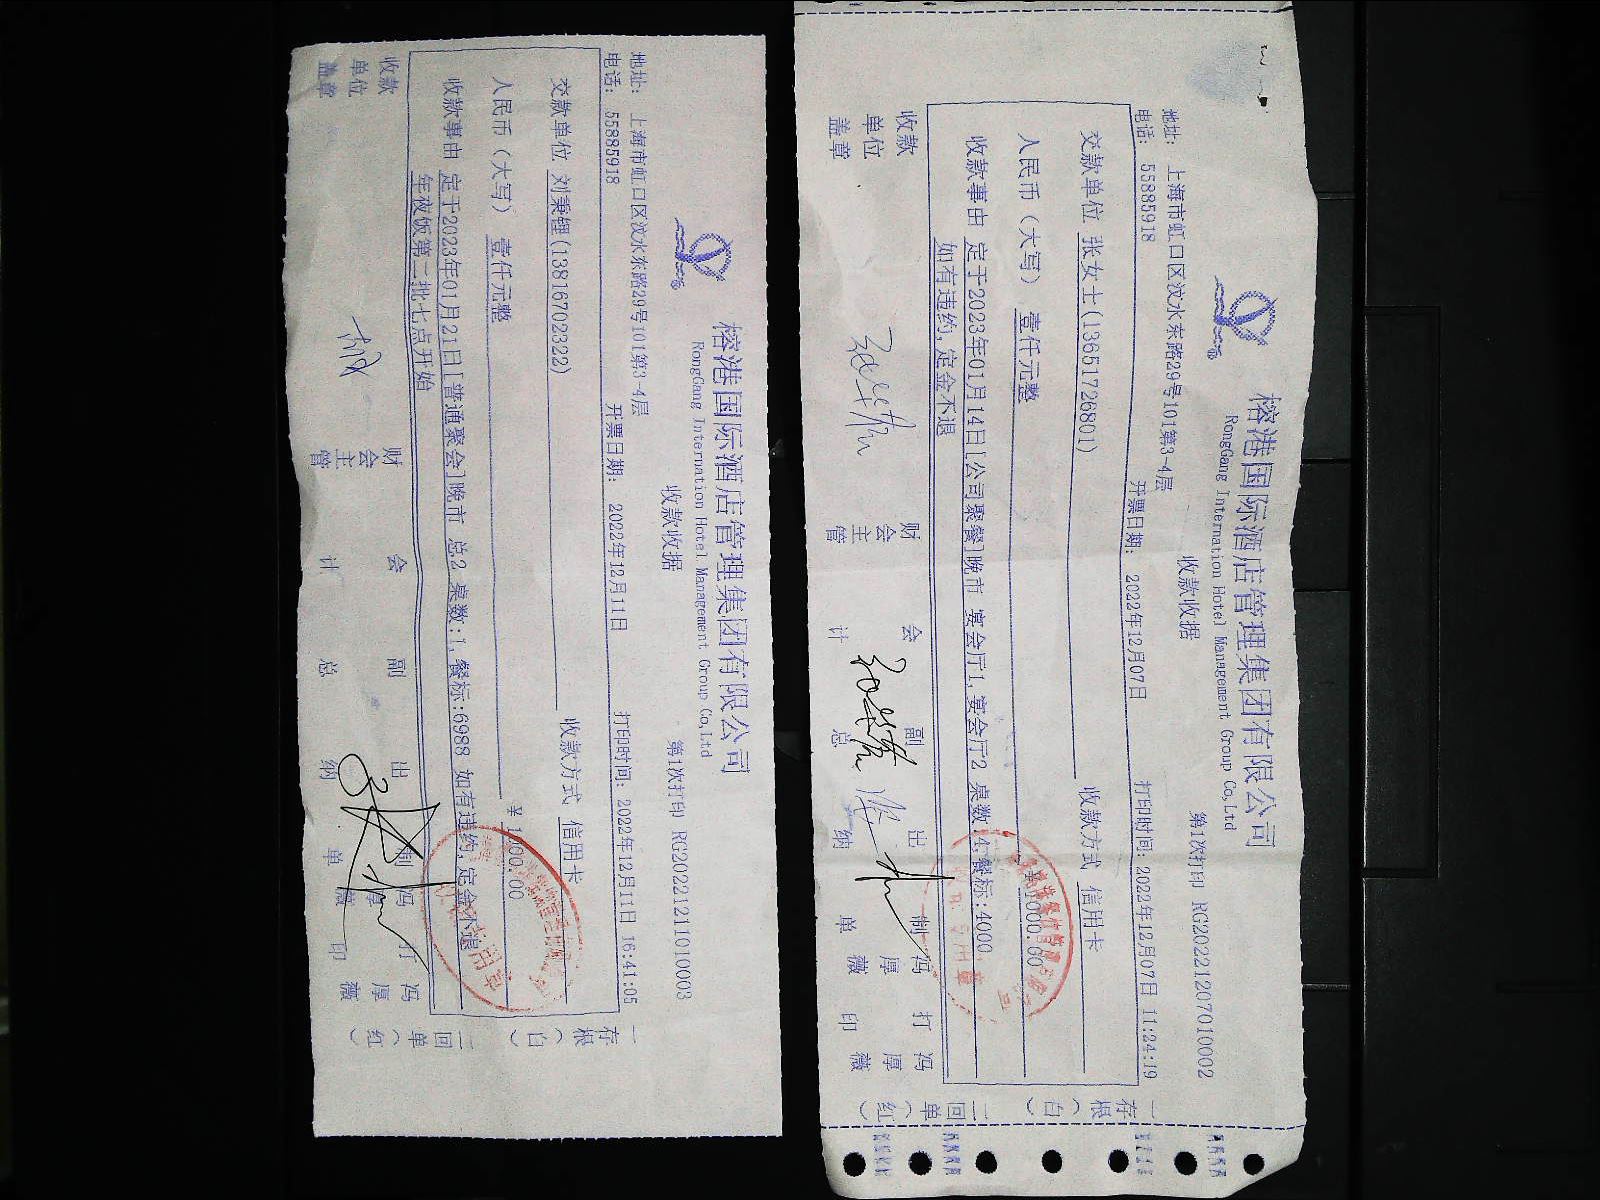 榕港国际酒店管理集团有限公司
RongGang Internation Hotel Management Group Co,Ltd
收款收据
第1次打印 RG20221211010003
地址: 上海市虹口区汶水东路29号101第3-4层
电话: 55885918
开票日期: 2022年12月11日
打印时间: 2022年12月11日 16:41:05
交款单位 刘秉锂(13816702322)
收款方式 信用卡
人民币（大写） 壹仟元整
¥ 1000.00
收款事由 定于2023年01月21日[普通聚会]晚市 总2 桌数:1,餐标:6988 如有违约,定金不退
年夜饭第二批七点开始
收款单位盖章
财会主管
会计
副总
出纳
制单 冯厚薇
打印 冯厚薇
一存根（白）
二回单（红）
榕港国际酒店管理集团有限公司
RongGang Internation Hotel Management Group Co,Ltd
收款收据
第1次打印 RG20221207010002
地址: 上海市虹口区汶水东路29号101第3-4层
电话: 55885918
开票日期: 2022年12月07日
打印时间: 2022年12月07日 11:24:19
交款单位 张女士(13651726801)
收款方式 信用卡
人民币（大写） 壹仟元整
¥ 1000.00
收款事由 定于2023年01月14日[公司聚餐]晚市 宴会厅1,宴会厅2 桌数:4,餐标:4000
如有违约,定金不退
收款单位盖章
财会主管
会计
副总
出纳
制单 冯厚薇
打印 冯厚薇
一存根（白）
二回单（红）